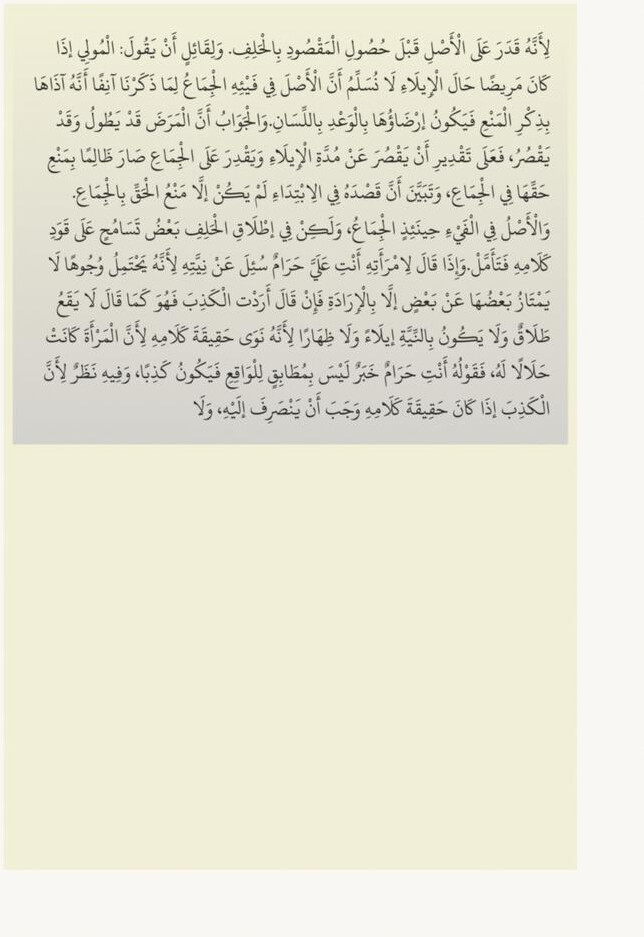 لِأَنَّهُ قَدَرَ عَلَى الْأَصْلِ قَبْلَ حُصُولِ الْمَقْصُودِ بِالْخَلِفِ. وَلِقَائِلٍ أَنْ يَقُولَ: الْمُولِي إذَا
كَانَ مَرِيضًا حَالَ الْإِيلَاءِ لَا نُسَلِّمُ أَنَّ الْأَصْلَ فِي فَيْئِهِ الْجِمَاعُ لِمَا ذَكَرْنَا آنِفًا أَنَّهُ آذَاهَا
بِذِكْرِ الْمَنْعِ فَيَكُونُ إرْضَاؤُهَا بِالْوَعْدِ بِاللِّسَانِ.وَالْجَوَابُ أَنَّ الْمَرَضَ قَدْ يَطُولُ وَقَدْ
يَقْصُرُ، فَعَلَى تَقْدِيرِ أَنْ يَقْصُرَ عَنْ مُدَّةِ الْإِيلَاءِ وَيَقْدِرَ عَلَى الْجِمَاعِ صَارَ ظَالِمًا بِمَنْعِ
حَقِّهَا فِي الْجِمَاعِ، وَتَبَيَّنَ أَنَّ قَصْدَهُ فِي الِابْتِدَاءِ لَمْ يَكُنْ إلَّا مَنْعُ الْحَقِّ بِالْجِمَاعِ.
وَالْأَصْلُ فِي الْفَيْءِ حِينَئِذٍ الْجِمَاعُ، وَلَكِنْ فِي إطْلَاقِ الْخَلِفِ بَعْضُ تَسَامُحٍ عَلَى قَوَدِ
كَلَامِهِ فَتَأَمَّلْ.وَإِذَا قَالَ لِامْرَأَتِهِ أَنْتِ عَلَيَّ حَرَامٌ سُئِلَ عَنْ نِيَّتِهِ لِأَنَّهُ يَحْتَمِلُ وُجُوهًا لَا
يَمْتَازُ بَعْضُهَا عَنْ بَعْضٍ إلَّا بِالْإِرَادَةِ فَإِنْ قَالَ أَرَدْت الْكَذِبَ فَهُوَ كَمَا قَالَ لَا يَقَعُ
طَلَاقٌ وَلَا يَكُونُ بِالنِّيَّةِ إيلَاءً وَلَا ظِهَارًا لِأَنَّهُ نَوَى حَقِيقَةَ كَلَامِهِ لِأَنَّ الْمَرْأَةَ كَانَتْ
حَلَالًا لَهُ، فَقَوْلُهُ أَنْتِ حَرَامٌ خَبَرٌ لَيْسَ بِمُطَابِقٍ لِلْوَاقِعِ فَيَكُونُ كَذِبًا، وَفِيهِ نَظَرٌ لِأَنَّ
الْكَذِبَ إذَا كَانَ حَقِيقَةَ كَلَامِهِ وَجَبَ أَنْ يَنْصَرِفَ إلَيْهِ، وَلَا